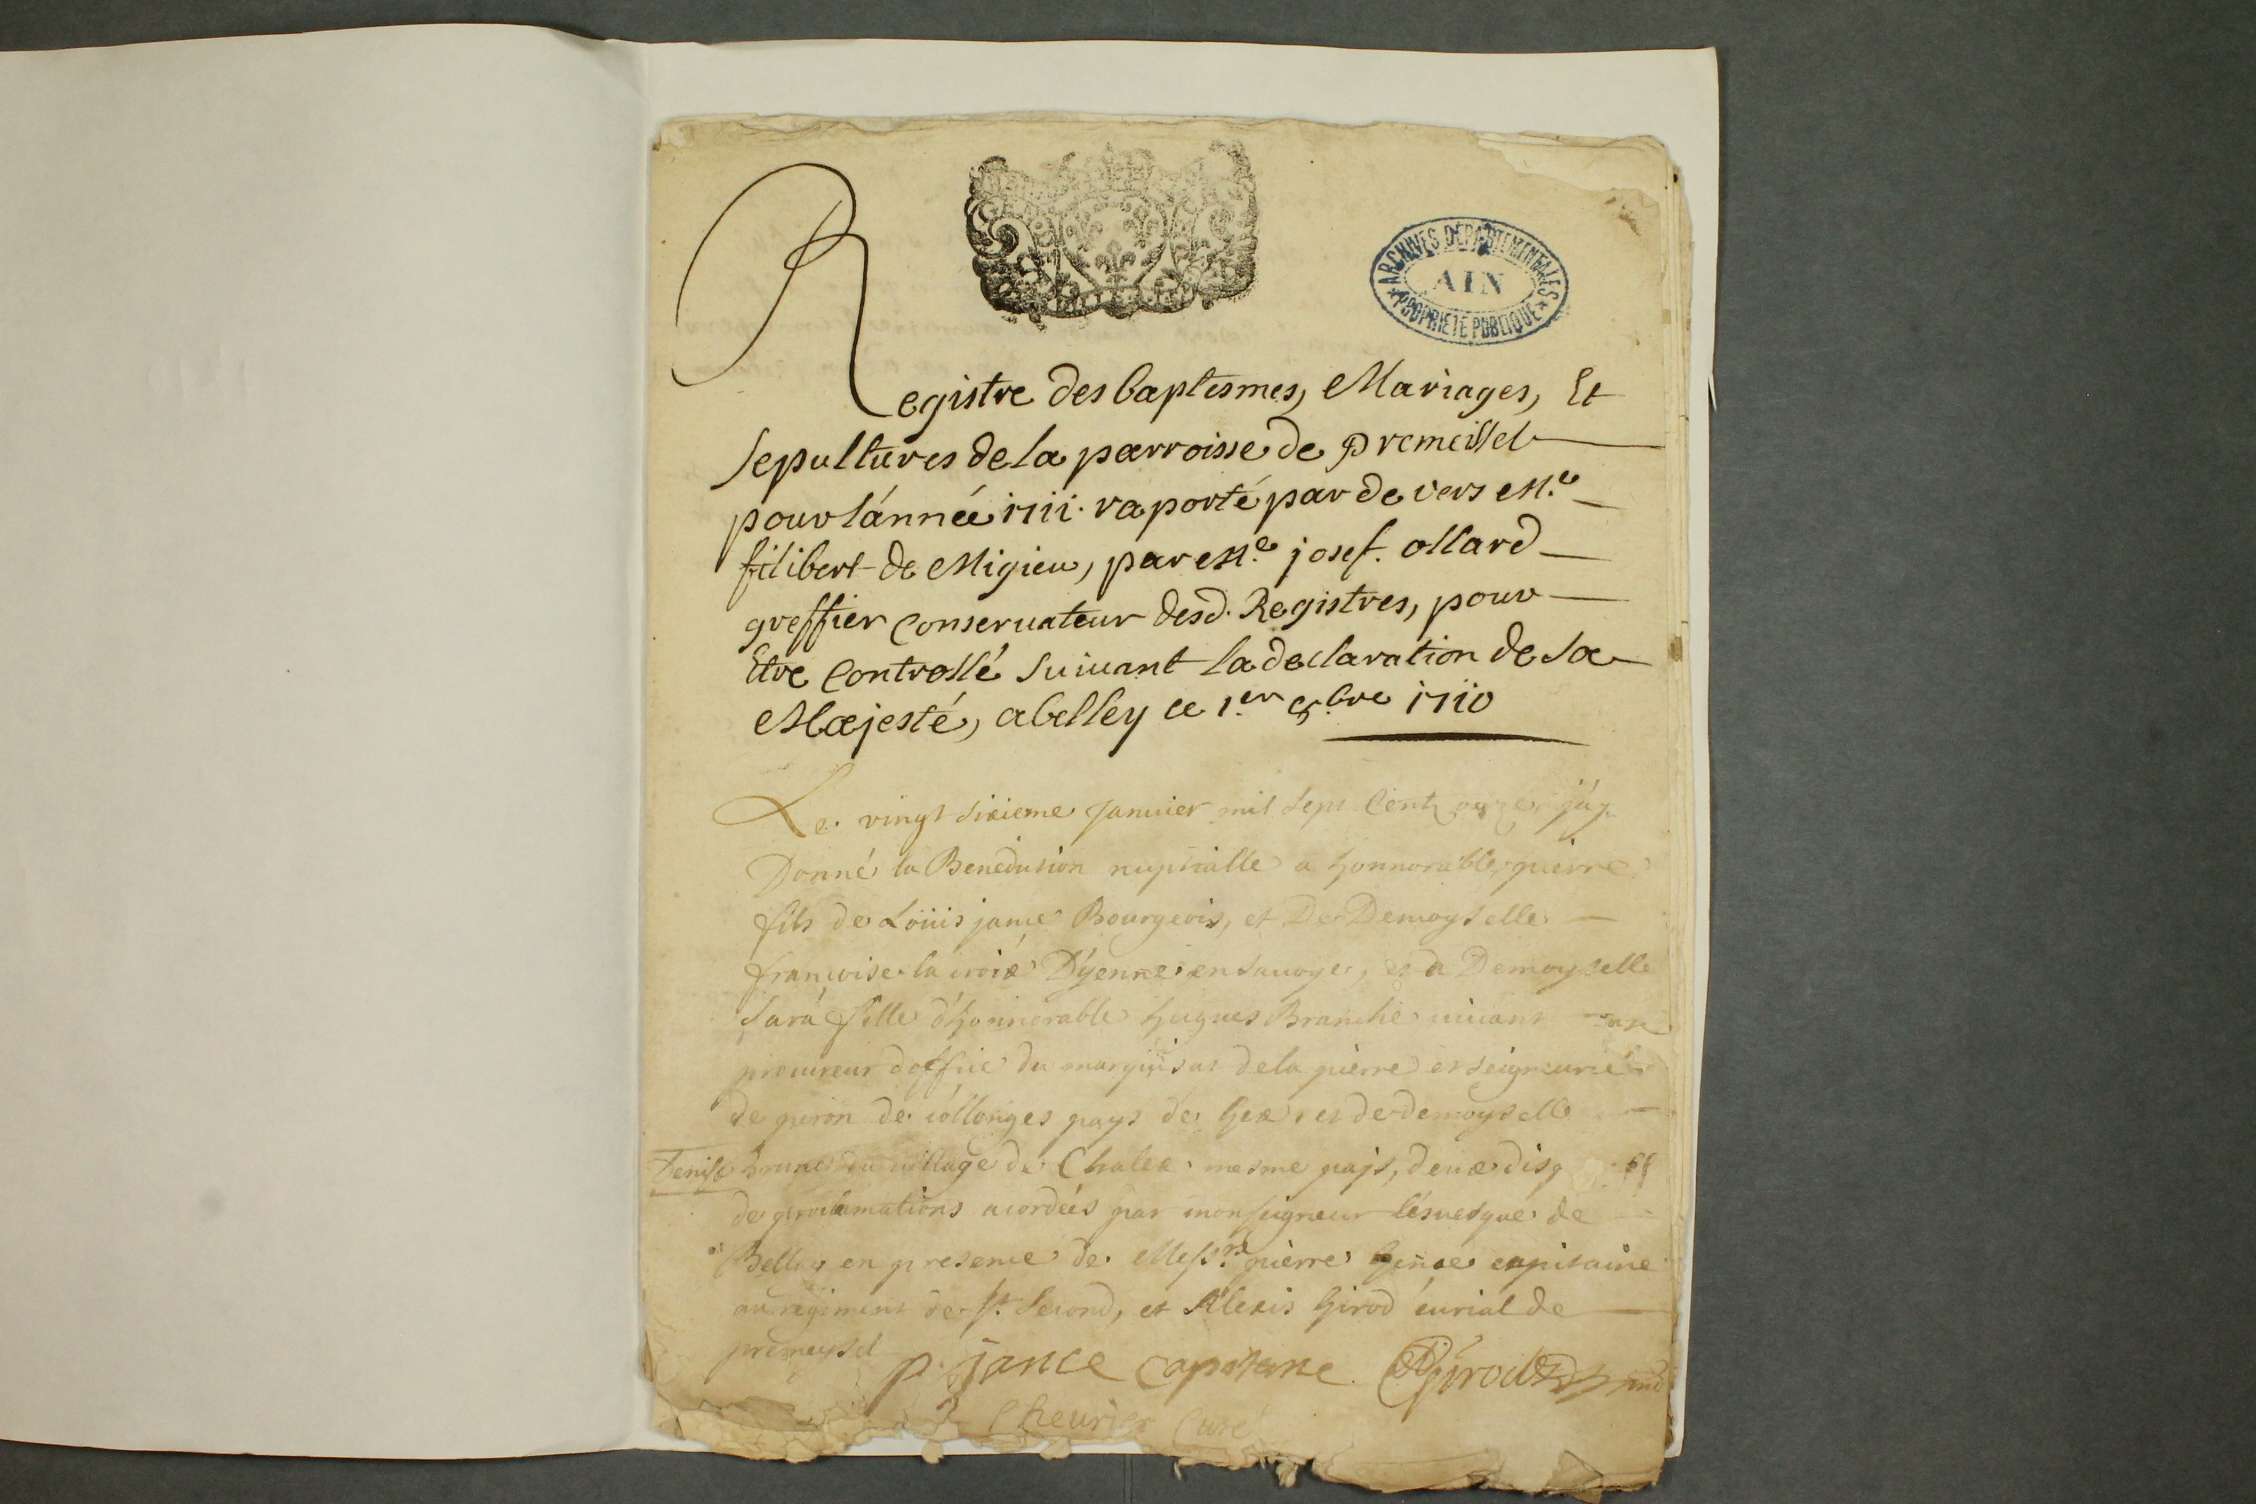 ARCHIVES DÉPARTEMENTALES
AIN
PROPRIÉTÉ PUBLIQUE
Registre des baptesmes, Mariages, Et
sepultures de la parroisse de premeissel
pour lánneé 1711. raporté par de vers Me.
filibert de Migieu, par Me. josef. ollard
greffier Conservateur desd. Registres, pour
Etre Controllé suivant la declaration de sa
Majesté, a belley ce 1.er bre 1710
Le vingt sixieme janvier mil sept Cent onze j'ay
Donné la Benediction nuptialle a honnorable pierre
fils de Loüis jance Bourgeois, et De Demoyselle
françoise la croix D'yenne en savoye, et a Demoyselle
sara fille d'honnorable hugues Branche vivant
procureur doffice du marquisat de la pierre et seigneurie
de peron de collonges pays de Gex et de demoyselle
brune du village de Chalex mesme pajs, deux disp
de proclamations acordeés par monseigneur l'esvesque de
Belley en presence de Messre. pierre capitaine
au regiment de st. second, et Alexis Girod curial de
premeysel
p. jance capitaine. Girod
Cheurier Curé